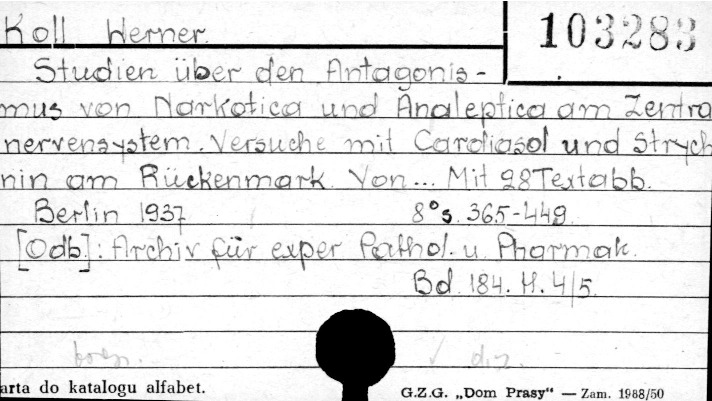 Koll Werner.
103283
Studien über den Antagonis-
mus von Narkotica und Analeptica am Zentra
nervensystem. Versuche mit Cardiasol und Strych
nin am Rückenmark. Von... Mit 28 Textabb.
Berlin 1937 8° s. 365-449.
[Odb.]: Archiv für exper Pathol. u. Pharmak.
Bd. 184. H. 4/5.
arta do katalogu alfabet.
G.Z.G. „Dom Prasy“ — Zam. 1988/50